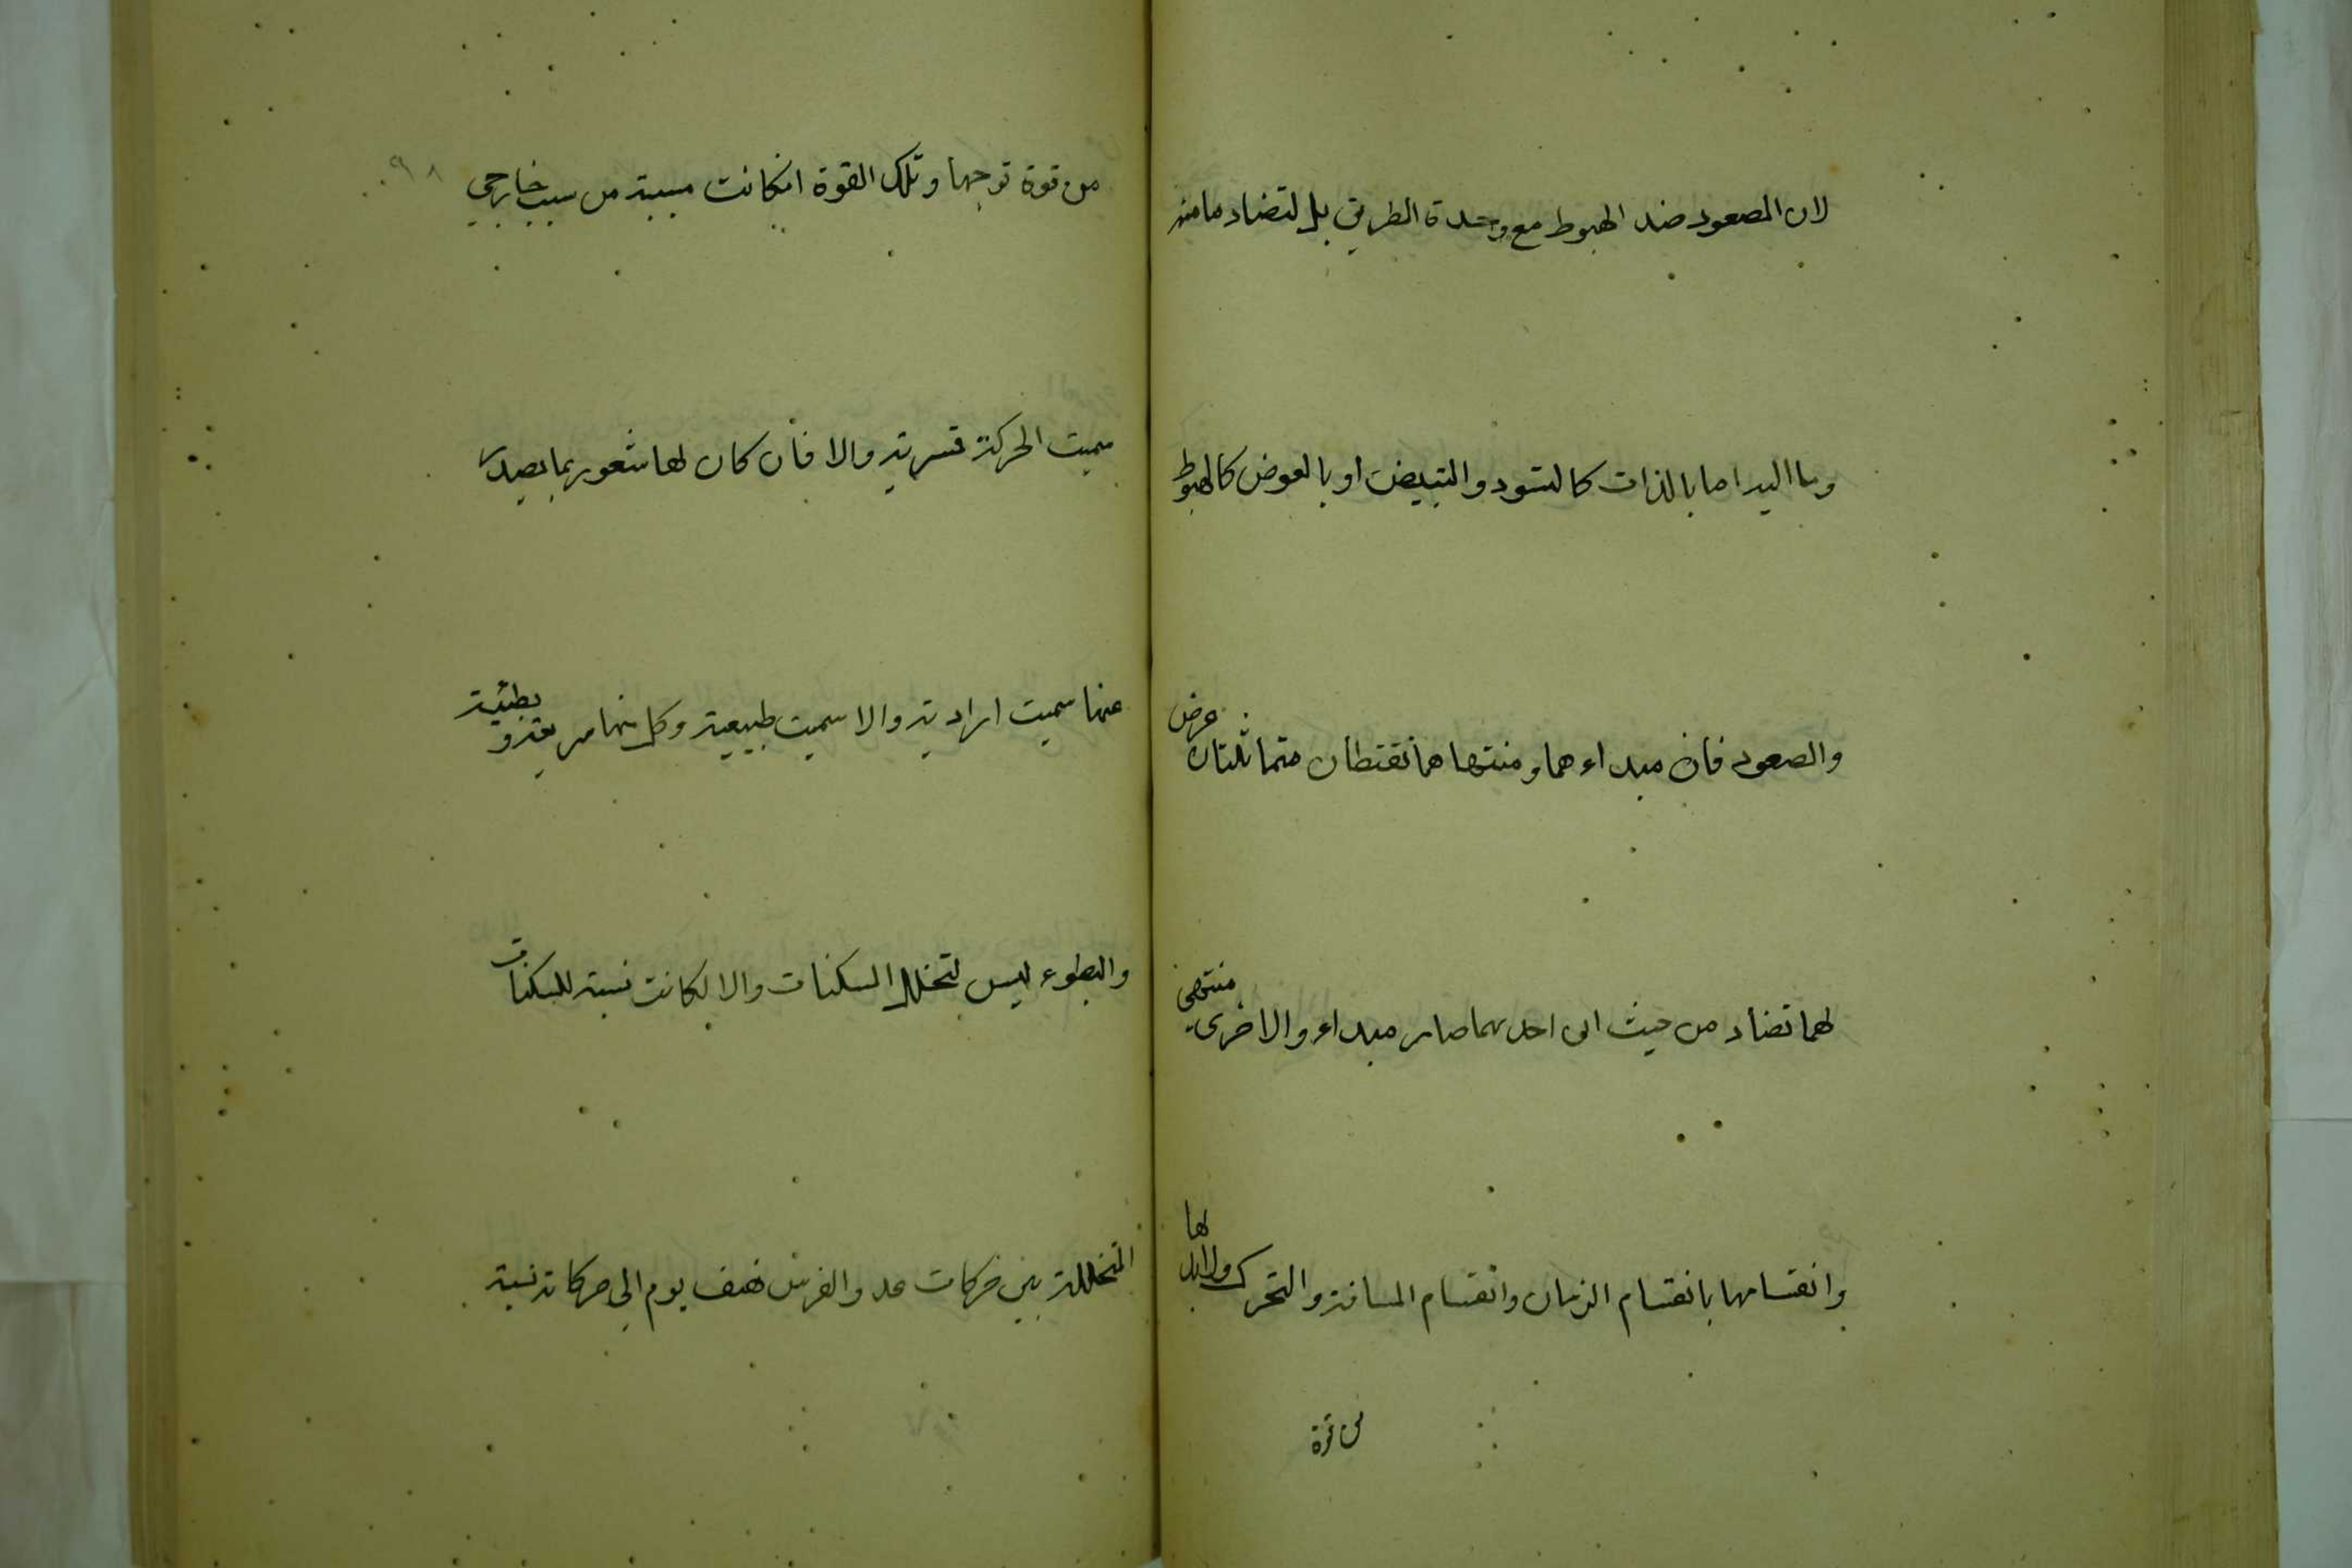 لان الصعود ضد الهبوط مع وحدة الطريق بل لتضاد ما منه
وما اليه اما بالذات كالتسود والتبيض او بالعرض كالهبوط
والصعود فان مبداءهما ومنتهاهما نقتطان متماثلتان عرض
لهما تضاد من حيث ان احديهما صار مبداء والاخرى منتهى
وانقسامها بانقسام الزمان وانقسام المسافة والتحرك ولابد لها
من قوة
٩٨
من قوة توجبها وتلك القوة انكانت مسببة من سبب خارجي
سميت الحركة قسرية والا فأن كان لها شعور بما يصدر
عنها سميت ارادية والا سميت طبيعية وكل منها سريعة وبطيئة
والبطوء ليس لتخلل السكنات والا لكانت نسبة السكنات
المتخللة بين حركات عدو الفرس نصف يوم الى حركاته نسبة